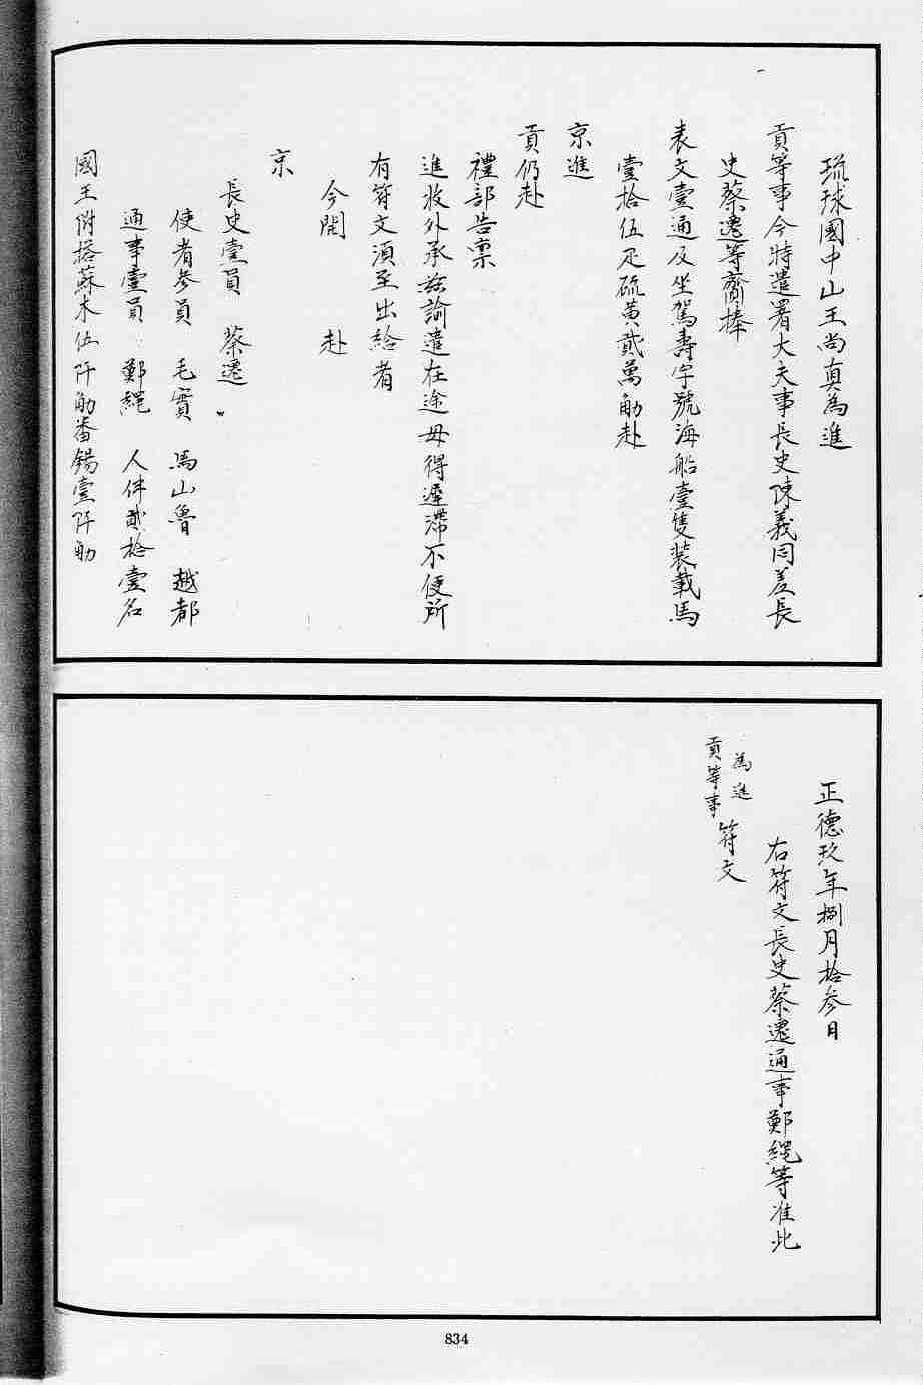 琉球國中山王尚真為進
貢等事今特遣署大夫事長史陳義同差長
史蔡遷等齎捧
表文壹通及坐駕壽字號海船壹隻裝載馬
壹拾伍疋硫黃貳萬觔赴
京進
貢仍赴
禮部告稟
進收外承茲諭遣在途毋得遲滯不便所
有符文須至出給者
今開　赴
京
長史壹員　蔡遷
使者參員　毛實　馬山魯　越都
通事壹員　鄭繩　人伴貳拾壹名
國王附搭蘇木伍阡觔番錫壹阡觔
正德玖年捌月拾參日
右符文長史蔡遷通事鄭繩等准此
為進
貢等事
符文
834